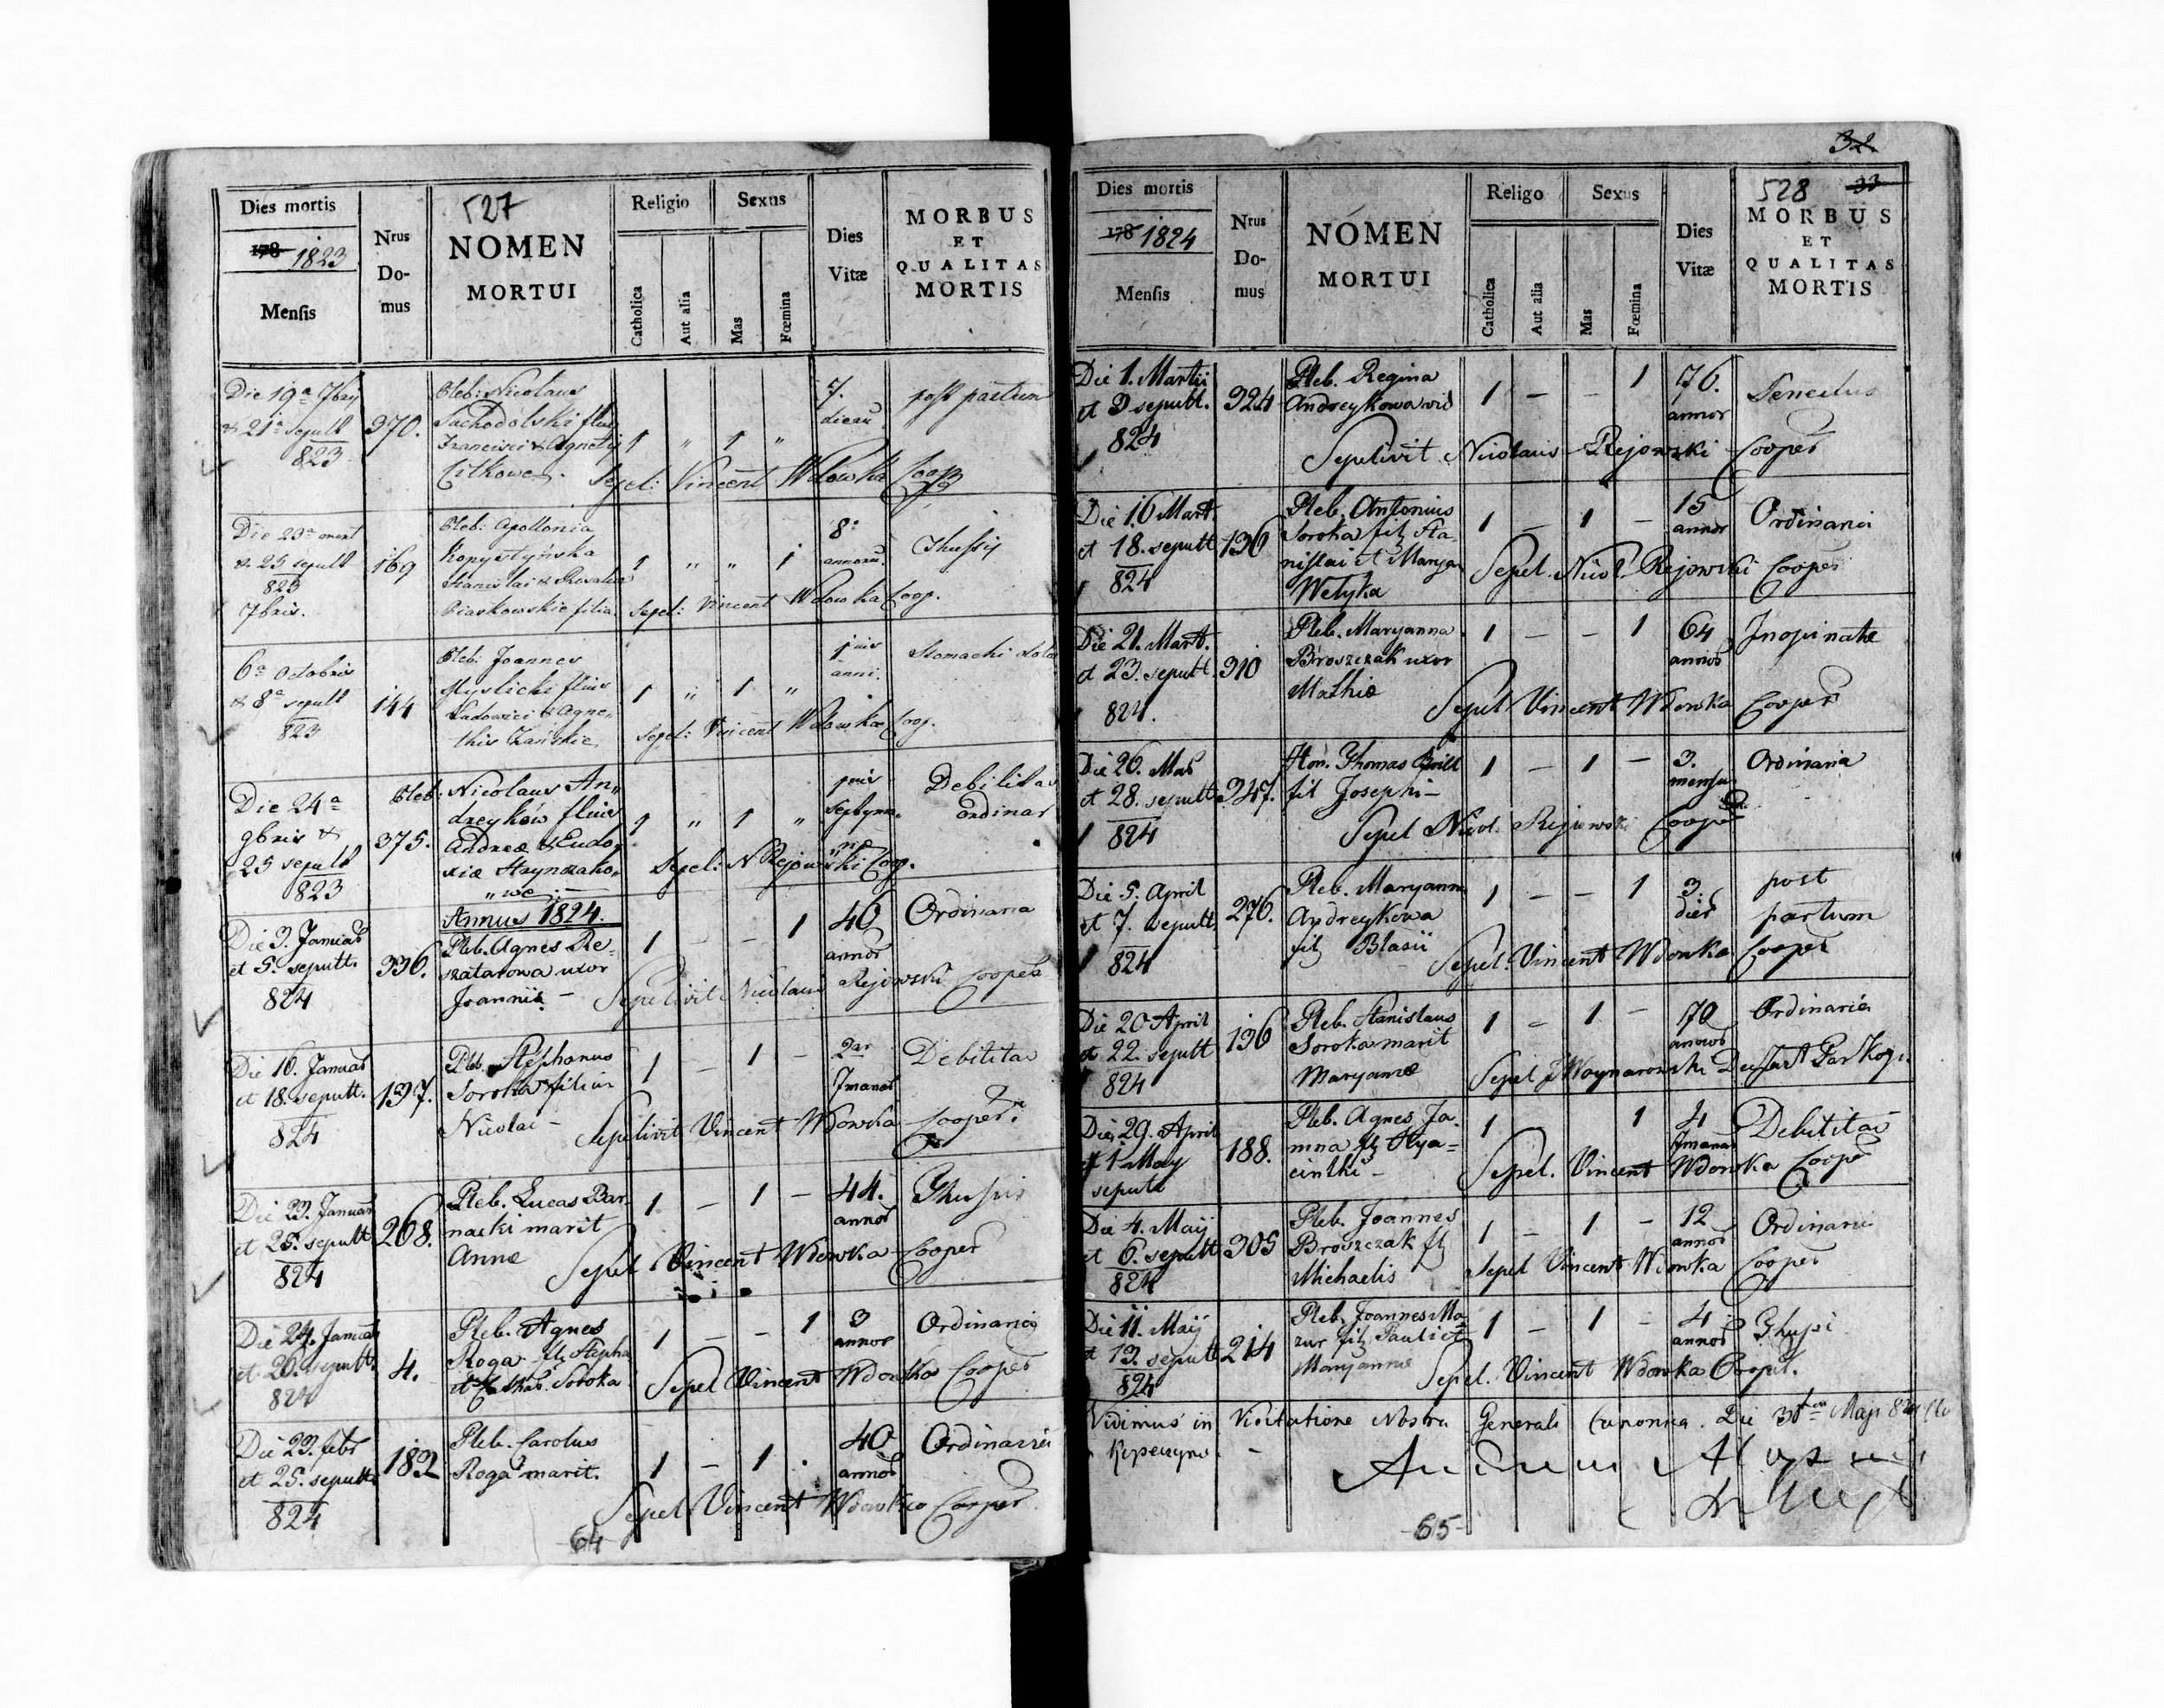 527
Dies mortis
178 1823
Mensis
Nrus Do-mus
NOMEN
MORTUI
Religio
Catholica
Aut alia
Sexus
Mas
Fœmina
Dies Vitæ
MORBUS
ET
QUALITAS
MORTIS
Die 19a 7bris
& 21a sepult
823
370.
Pleb: Nicolaus
Suchodolski filius
Francisci & Agnetis
1 " 1 "
7.
dierum
post partum
Sepel: Vincent Wdowka Coop
& 25 sepult
823
7bris.
169
Pleb: Apollonia
Kopystyńska
Stanislai & Rosalia
Piaskowskie filia
1 " " 1
8
annorum
Thussis
Sepel: Vincent Wdowka Coop.
6a Octobris
& 8a sepult
823
144
Pleb: Joannes
Myslicki filius
Ludovici & Agne
1 " 1 "
1
anni.
Stomachi dolor
Sepel: Vincent Wdowka Coop.
Die 24a
9bris &
25 sepult
823
375.
Pleb: Nicolaus An
dreyków filius
Andreæ & Eudo
xiæ
1 " 1 "
Debilitas
ordinar
Sepel: N Rejowski Coop.
Annus 1824.
Die 3. Januar
et 5. sepult.
824
336.
Pleb. Agnes Re-
szatarowa uxor
Joannis –
1 – – 1
40
annor
Ordinaria
Sepelivit Nicolaus Rejowski Cooper
Die 16. Januar
et 18. sepult.
824
137.
Pleb. Stephanus
Soroka filius
Nicolai –
1 – 1 –
Debilitas
Sepelivit Vincent Wdowka Cooper.
Die 23. Januar
et 25. sepult
824
268.
Pleb. Lucas Bar
nacki marit
Annæ
1 – 1 –
44.
annor
Thussis
Sepel Vincent Wdowka Cooper
Die 24. Januar
et 26. sepult.
824
4.
Pleb. Agnes
Roga filj Stepha
et Cathar. Soroka
1 – – 1
3
annor
Ordinaria
Sepel Vincent Wdowka Cooper
Die 23. febr
et 25. sepult
824
182
Pleb. Carolus
Roga marit.
1 – 1 .
40
annor
Ordinaria
Sepel Vincent Wdowka Cooper
64
32
528 33
Dies mortis
178 1824
Mensis
Nrus Do-mus
NOMEN
MORTUI
Religo
Catholica
Aut alia
Sexus
Mas
Fœmina
Dies Vitæ
MORBUS
ET
QUALITAS
MORTIS
Die 1. Martii
et 3 sepult.
824
324
Pleb. Regina
Andreykowa vid
1 – – 1
76.
annor
Senectus
Sepelivit Nicolaus Rejowski Cooper
Die 16 Mart.
et 18. sepult
824
136
Pleb. Antonius
Soroka filj Sta-
nislai et Maryan
Welyka
1 – 1 –
15
annor
Ordinaria
Sepel. Nicol. Rejowski Cooper
Die 21. Mart.
et 23. sepult
824.
310
Pleb. Maryanna
Broszczak uxor
Mathiæ
1 – – 1
64
annor
Inopinate
Sepel Vincent Wdowka Cooper
Die 26. Mar
et 28. sepult
824
347.
Hon. Thomas
fil Josephi –
1 – 1 –
3.
mensium
Ordinaria
Sepel Nicol. Rejowski Cooper
Die 5. April
et 7. sepult
824
276.
Pleb. Maryanna
Andreykowa
filj Blasii
1 – – 1
3.
dier
post
partum
Sepel. Vincent Wdowka Cooper
Die 20 April
et 22. sepult
824
136
Pleb. Stanislaus
Soroka marit
Maryannæ
1 – 1 –
70
annor
Ordinaria
Die 29. April
et 1 May
sepult
188.
Pleb. Agnes Ja-
mna filj Hya-
cinthi –
1 – 1
4
Debilitas
Sepel. Vincent Wdowka Cooper
Die 4. Maij
et 6. sepult
824
305
Pleb. Joannes
Broszczak filj
Michaelis
1 – 1 –
12
annor
Ordinaria
Sepel Vincent Wdowka Cooper
Die 11. Maij
et 13. sepult
824
214
Pleb. Joannes Ma-
zur filj Pauli et
Maryannæ
1 – 1 –
4
annor
Thussi
Sepel. Vincent Wdowka Cooper.
Vidimus in Visitatione Nostra Generali Canonica. Die
65